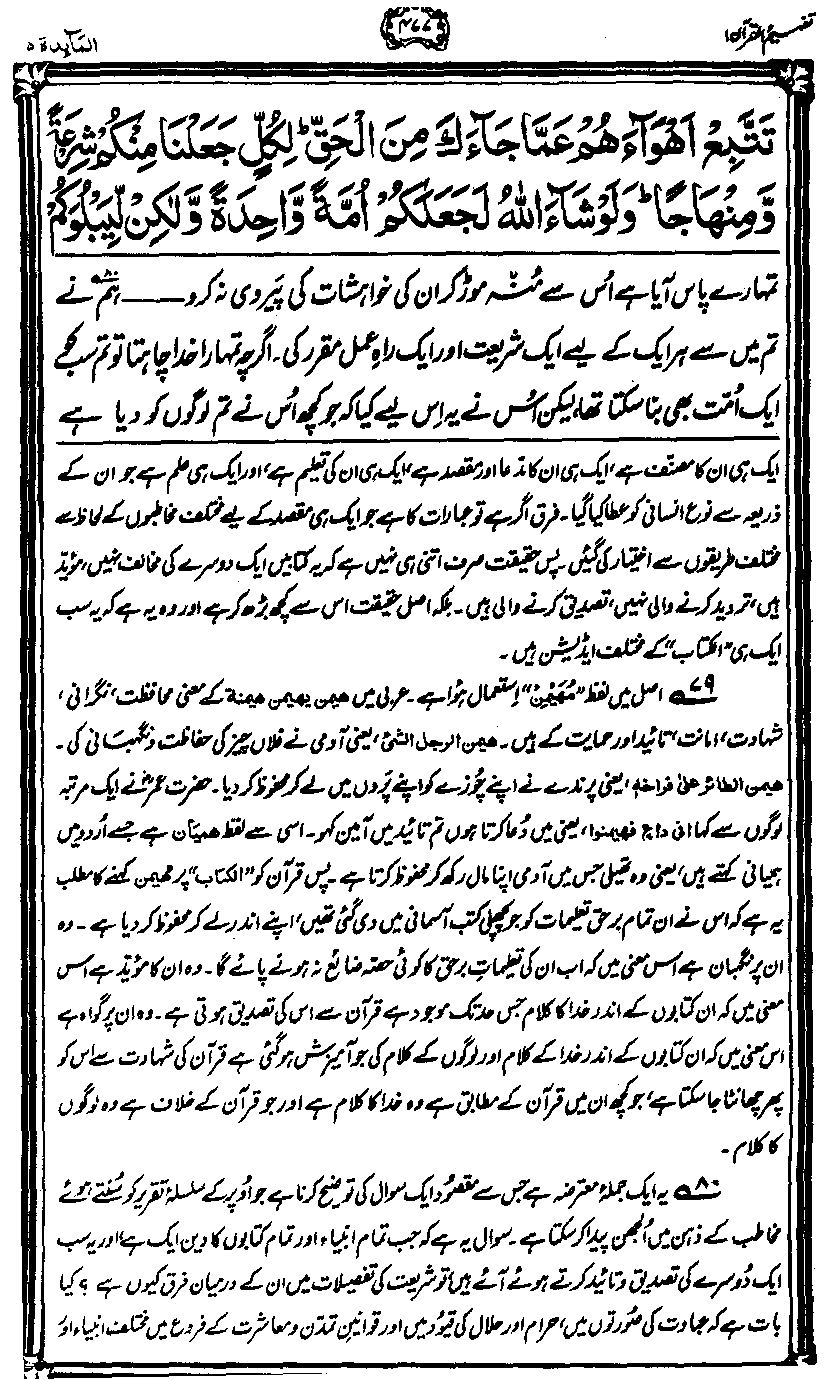 تفہیم القرآن ۱
۴۷۷
المآئدة ۵
تَتَّبِعْ اَهْوَآءَهُمْ عَمَّا جَآءَكَ مِنَ الْحَقِّ ؕ لِكُلٍّ جَعَلْنَا مِنْكُمْ شِرْعَةً
وَّمِنْهَاجًا ؕ وَلَوْ شَآءَ اللهُ لَجَعَلَكُمْ اُمَّةً وَّاحِدَةً وَّلٰكِنْ لِّيَبْلُوَكُمْ
تمہارے پاس آیا ہے اُس سے مُنہ موڑ کر ان کی خواہشات کی پَیروی نہ کرو ـــــ ہم۸۰ نے
تم میں سے ہر ایک کے لیے ایک شریعت اور ایک راہِ عمل مقرر کی۔ اگرچہ تمہارا خدا چاہتا تو تم سب کو
ایک اُمّت بھی بنا سکتا تھا، لیکن اُس نے یہ اِس لیے کیا کہ جو کچھ اُس نے تم لوگوں کو دیا ہے
ایک ہی ان کا مصنّف ہے، ایک ہی ان کا مدّعا اور مقصد ہے، ایک ہی ان کی تعلیم ہے، اور ایک ہی علم ہے جو ان کے
ذریعہ سے نوعِ انسانی کو عطا کیا گیا۔ فرق اگر ہے تو عبارات کا ہے جو ایک ہی مقصد کے لیے مختلف مخاطبوں کے لحاظ سے
مختلف طریقوں سے اختیار کی گئیں۔ پس حقیقت صرف اتنی ہی نہیں ہے کہ یہ کتابیں ایک دوسرے کی مخالف نہیں، مؤیّد
ہیں، تردید کرنے والی نہیں، تصدیق کرنے والی ہیں۔ بلکہ اصل حقیقت اس سے کچھ بڑھ کر ہے اور وہ یہ ہے کہ یہ سب
ایک ہی "الکتاب" کے مختلف ایڈیشن ہیں۔
۷۹ اصل میں لفظ "مُہَیْمِنْ" اِستعمال ہُوا ہے۔ عربی میں هيمن يهيمن هيمنة کے معنی محافظت، نگرانی،
شہادت، امانت، تائید اور حمایت کے ہیں۔ هيمن الرجل الشئ، یعنی آدمی نے فلاں چیز کی حفاظت و نگہبانی کی۔
هيمن الطائر على فراخه، یعنی پرندے نے اپنے چُوزے کو اپنے پَروں میں لے کر محفوظ کر دیا۔ حضرت عمرؓ نے ایک مرتبہ
لوگوں سے کہا انى داع فهيمنوا، یعنی میں دُعا کرتا ہوں تم تائید میں آمین کہو۔ اسی سے لفظ هِميَان ہے جسے اُردو میں
ہمیانی کہتے ہیں، یعنی وہ تھیلی جس میں آدمی اپنا مال رکھ کر محفوظ کرتا ہے۔ پس قرآن کو "الکتاب" پر مہیمن کہنے کا مطلب
یہ ہے کہ اس نے ان تمام برحق تعلیمات کو جو پچھلی کتبِ آسمانی میں دی گئی تھیں، اپنے اندر لے کر محفوظ کر دیا ہے۔ وہ
ان پر نگہبان ہے اس معنی میں کہ اب ان کی تعلیماتِ برحق کا کوئی حصّہ ضائع نہ ہونے پائے گا۔ وہ ان کا مؤیّد ہے اس
معنی میں کہ ان کتابوں کے اندر خدا کا کلام جس حد تک موجود ہے قرآن سے اس کی تصدیق ہوتی ہے۔ وہ ان پر گواہ ہے
اس معنی میں کہ ان کتابوں کے اندر خدا کے کلام اور لوگوں کے کلام کی جو آمیزش ہو گئی ہے قرآن کی شہادت سے اس کو
پھر چھانٹا جا سکتا ہے، جو کچھ ان میں قرآن کے مطابق ہے وہ خدا کا کلام ہے اور جو قرآن کے خلاف ہے وہ لوگوں
کا کلام۔
۸۰ یہ ایک جملۂ معترضہ ہے جس سے مقصُود ایک سوال کی توضیح کرنا ہے جو اُوپر کے سلسلۂ تقریر کو سُنتے ہوئے
مخاطب کے ذہن میں اُلجھن پیدا کر سکتا ہے۔ سوال یہ ہے کہ جب تمام انبیاء اور تمام کتابوں کا دین ایک ہے، اور یہ سب
ایک دُوسرے کی تصدیق و تائید کرتے ہوئے آئے ہیں، تو شریعت کی تفصیلات میں ان کے درمیان فرق کیوں ہے؟ کیا
بات ہے کہ عبادت کی صُورتوں میں، حرام اور حلال کی قیُود میں اور قوانینِ تمدّن و معاشرت کے فروع میں مختلف انبیاء اور